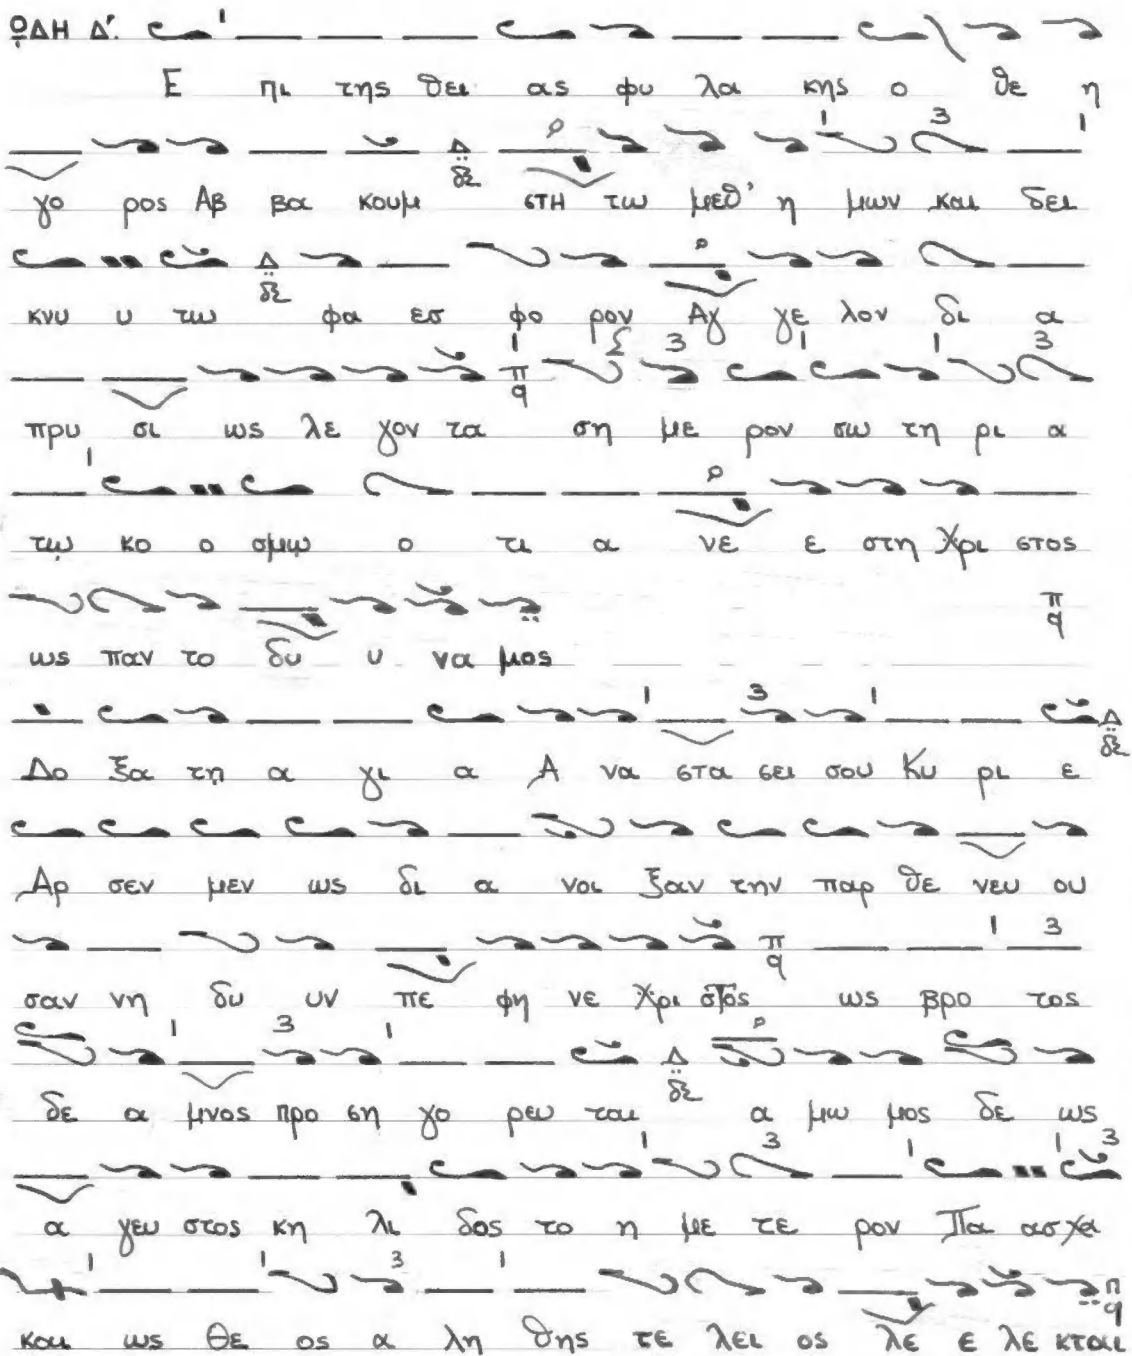 ΩΔΗ Δ΄.
Ε πι της θει ας φυ λα κης ο θε η
γο ρος Αβ βα κουμ στη τω μεθ' η μων και δει
κνυ υ τω φα εσ φο ρον Αγ γε λον δι α
πρυ σι ως λε γον τα ση με ρον σω τη ρι α
τῳ κο ο σμῳ ο τι α νε ε στη Χρι στος
ως παν το δυ υ να μος
Δο ξα τη α γι α Α να στα σει σου Κυ ρι ε
Αρ σεν μεν ως δι α νοι ξαν την παρ θε νευ ου
σαν νη δυ υν πε φη νε Χρι στος ως βρο τος
δε α μνος προ ση γο ρευ ται α μω μος δε ως
α γευ στος κη λι δος το η με τε ρον Πα ασχα
και ως Θε ος α λη θης τε λει ος λε ε λε κται